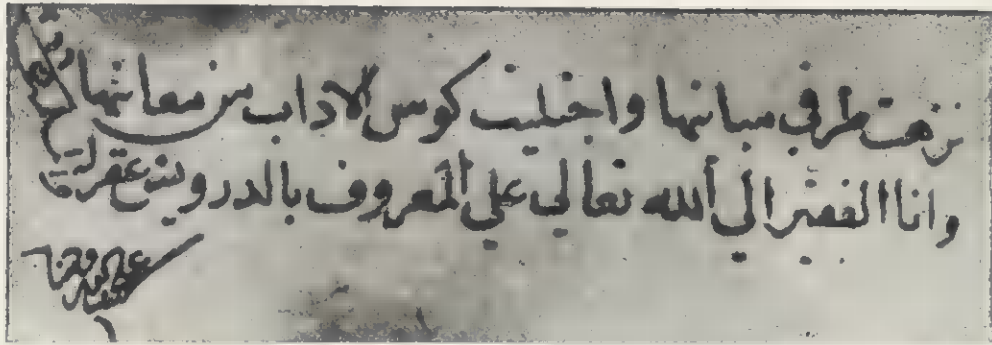 نزهت طرفي مبانيها واجتليت كوس الاداب من معانيها
وانا الفقير الي الله تعالي علي المعروف بالدرويش غفر له